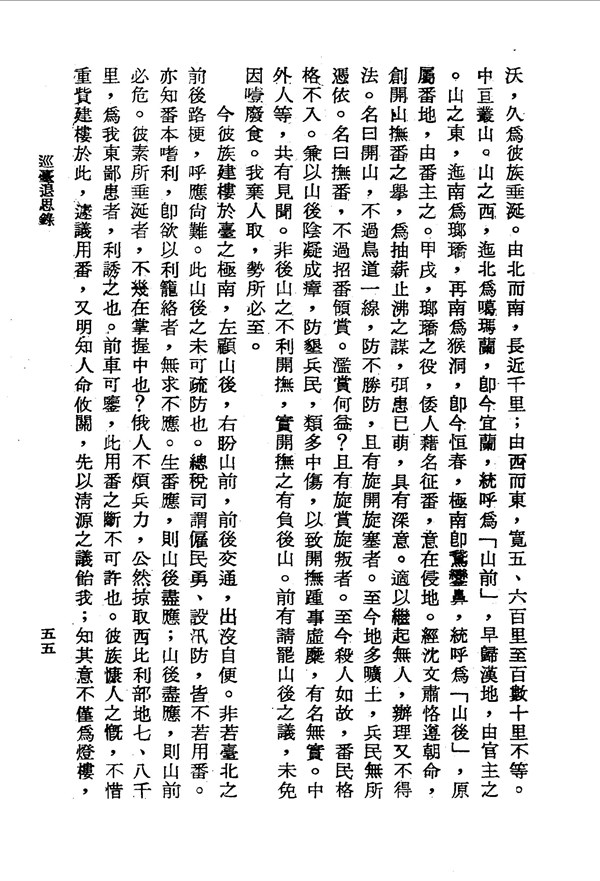 沃，久爲彼族垂涎。由北而南，長近千里；由西而東，寬五、六百里至百數十里不等。
中亘叢山。山之西，迤北爲噶瑪蘭，卽今宜蘭，統呼爲「山前」，早歸漢地，由官主之
。山之東，迤南爲瑯𤩝，再南爲猴洞，卽今恒春，極南卽鵞鑾鼻，統呼爲「山後」，原
屬番地，由番主之。甲戌，瑯𤩝之役，倭人藉名征番，意在侵地。經沈文肅恪遵朝命，
創開山撫番之舉，爲抽薪止沸之謀，弭患已萌，具有深意。適以繼起無人，辦理又不得
法。名曰開山，不過鳥道一線，防不勝防，且有旋開旋塞者。至今地多曠土，兵民無所
憑依。名曰撫番，不過招番領賞。濫賞何益？且有旋賞旋叛者。至今殺人如故，番民格
格不入。兼以山後陰凝成瘴，防墾兵民，類多中傷，以致開撫踵事虛糜，有名無實。中
外人等，共有見聞。非後山之不利開撫，實開撫之有負後山。前有請罷山後之議，未免
因噎廢食。我棄人取，勢所必至。
今彼族建樓於臺之極南，左顧山後，右盼山前，前後交通，出沒自便。非若臺北之
前後路梗，呼應尙難。此山後之未可疏防也。總稅司謂僱民勇、設汛防，皆不若用番。
亦知番本嗜利，卽欲以利籠絡者，無求不應。生番應，則山後盡應；山後盡應，則山前
必危。彼素所垂涎者，不幾在掌握中也？俄人不煩兵力，公然掠取西比利部地七、八千
里，爲我東鄙患者，利誘之也。前車可鑒，此用番之斷不可許也。彼族慷人之慨，不惜
重貲建樓於此，遽議用番，又明知人命攸關，先以淸源之議飴我；知其意不僅爲燈樓，
巡臺退思錄
五五